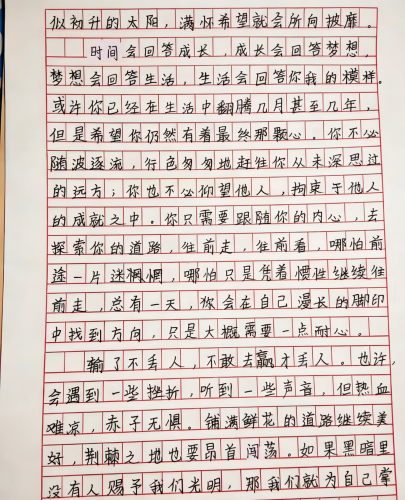 似初升的太阳，满怀希望就会所向披靡。
时间会回答成长，成长会回答梦想，
梦想会回答生活，生活会回答你我的模样。
或许你已经在生活中翻腾几月甚至几年，
但是希望你仍然有着最终那颗心。你不必
随波逐流，行色匆匆地赶往你从未深思过
的远方；你也不必仰望他人，拘束于他人
的成就之中。你只需要跟随你的内心，去
探索你的道路，往前走，往前看，哪怕前
途一片迷惘惘，哪怕只是凭着惯性继续往
前走，总有一天，你会在自己漫长的脚印
中找到方向，只是大概需要一点耐心。
输了不丢人，不敢去赢才丢人。也许，
会遇到一些挫折，听到一些声音，但热血
难凉，赤子无惧。铺满鲜花的道路继续美
好，荆棘之地也要昂首闯荡。如果黑暗里
没有人赐予我们光明，那我们就为自己掌